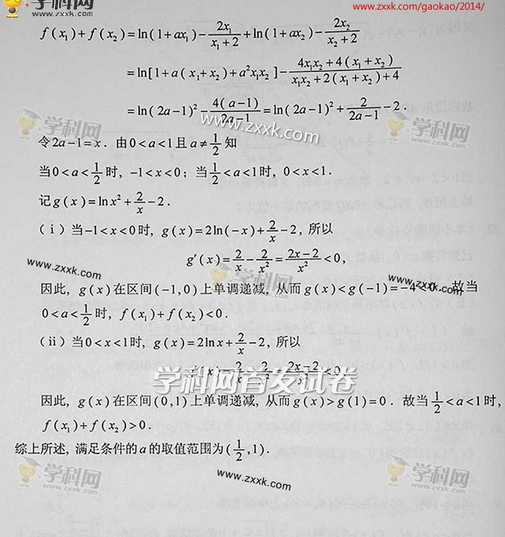 学科网
www.zxxk.com/gaokao/2014/
f(x₁)+f(x₂)=ln(1+ax₁)-2x₁/(x₁+2)+ln(1+ax₂)-2x₂/(x₂+2)
=ln[1+a(x₁+x₂)+a²x₁x₂]-(4x₁x₂+4(x₁+x₂))/(x₁x₂+2(x₁+x₂)+4)
=ln(2a-1)²-4(a-1)/(2a-1)=ln(2a-1)²+2/(2a-1)-2.
www.zxxk.com
令2a-1=x. 由0<a<1且a≠1/2知
当0<a<1/2时, -1<x<0; 当1/2<a<1时, 0<x<1.
记g(x)=lnx²+2/x-2.
(ⅰ)当-1<x<0时, g(x)=2ln(-x)+2/x-2, 所以
g′(x)=2/x-2/x²=(2x-2)/x²<0,
www.zxxk.com
学科网
因此, g(x)在区间(-1,0)上单调递减, 从而g(x)<g(-1)=-4<0. 故当
www.zxxk.com
0<a<1/2时, f(x₁)+f(x₂)<0.
(ⅱ)当0<x<1时, g(x)=2lnx+2/x-2, 所以
学科网首发试卷
因此, g(x)在区间(0,1)上单调递减, 从而g(x)>g(1)=0. 故当1/2<a<1时,
f(x₁)+f(x₂)>0.
综上所述, 满足条件的a的取值范围为(1/2,1).
www.zxxk.com